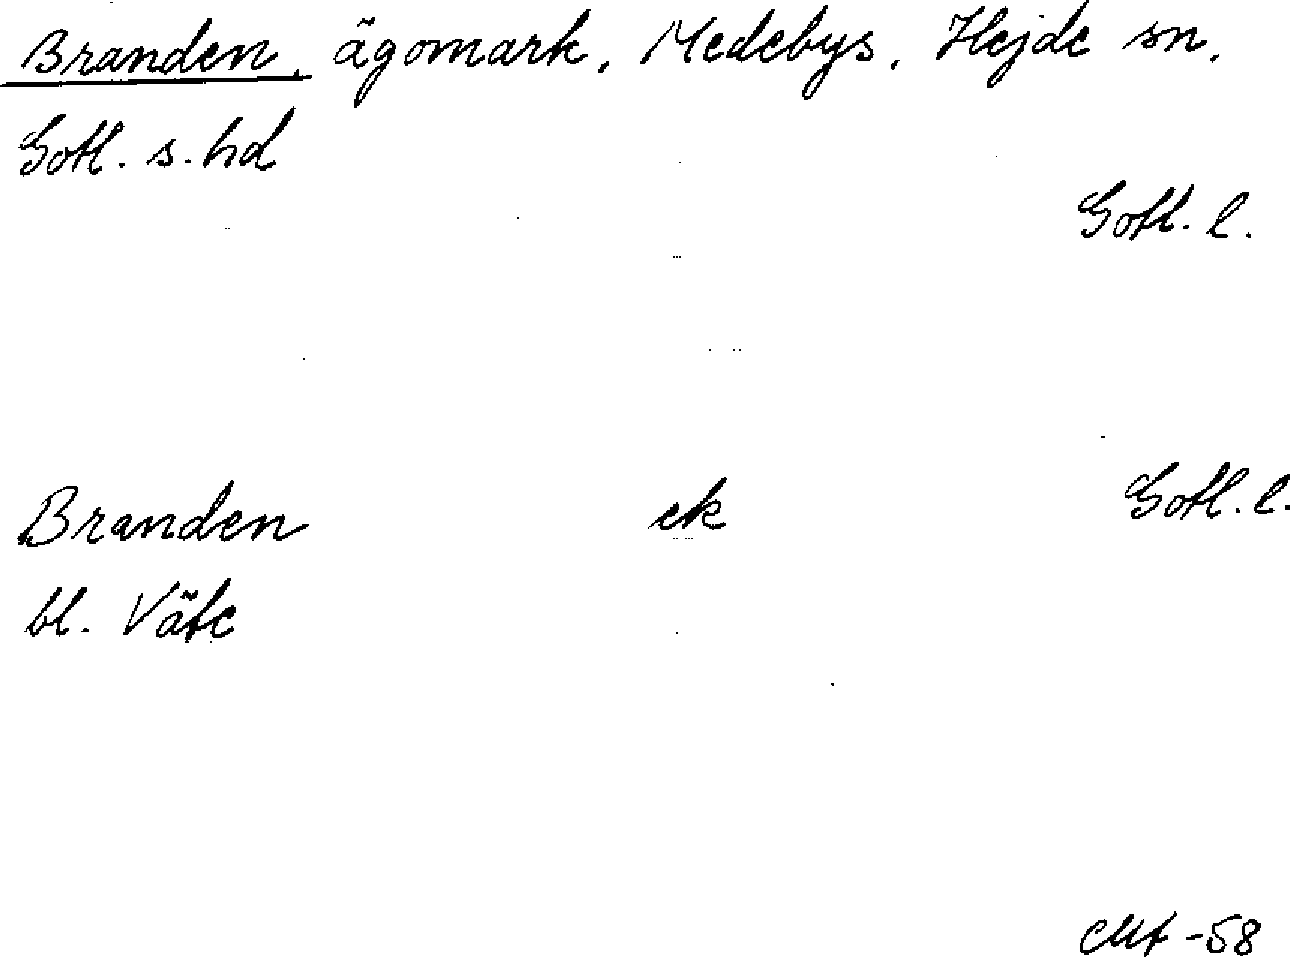 Branden, ägomark, Medebys, Hejde sn,
Gotl. s. hd
Gotl. l.
Branden ek Gotl. l.
bl. Väte
-58